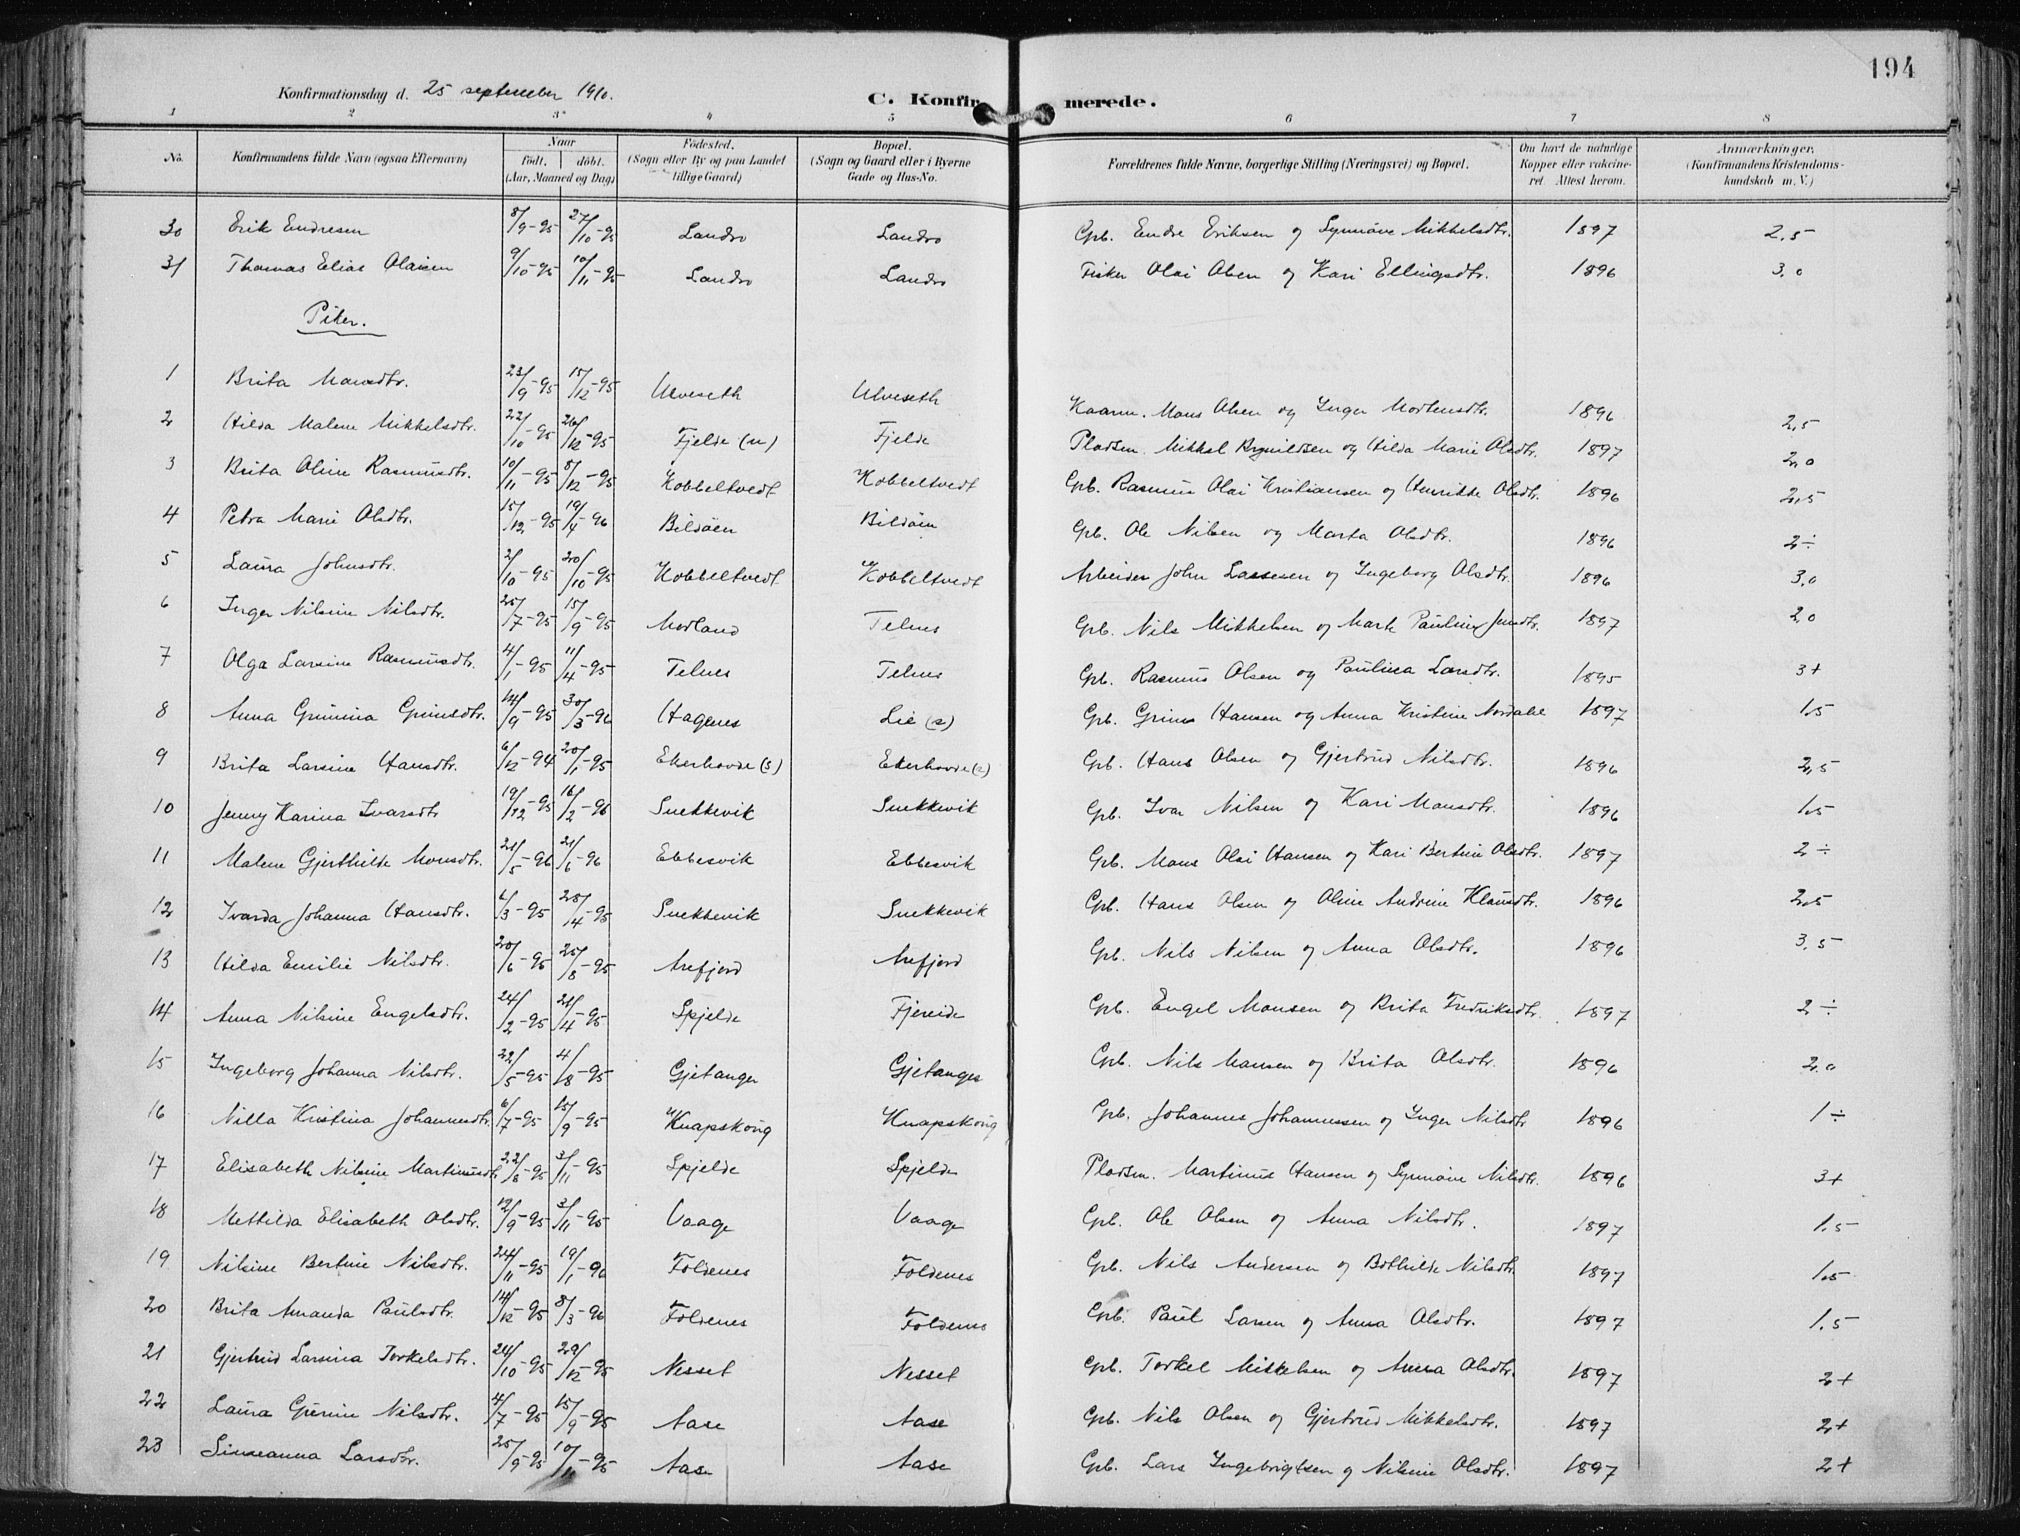 194
Konfirmationsdag d. 25 september 1910.
C. Konfirmerede.
1 2 3 4 5 6 7 8
No. Konfirmandens fulde Navn (ogsaa Efternavn) Naar født. døbt. (Aar, Maaned og Dag) Fødested. (Sogn eller By og paa Landet tillige Gaard) Bopæl. (Sogn og Gaard eller i Byerne Gade og Hus-No. Forældrenes fulde Navne, borgerlige Stilling (Næringsvei) og Bopæl. Om havt de naturlige Kopper eller vakcineret. Attest herom. Anmærkninger. (Konfirmandens Kristendomskundskab m. V.)
30 Erik Endresen 8/9-95 27/10-95 Landro Landro Gpb. Endre Eriksen og Synnöve Mikkelsdtr. 1897 2,5
31 Thomas Elias Olaisen 9/10-95 10/11-95 Landro Landro Fisker Olai Olsen og Kari Ellingsdtr. 1896 3,0
Piker.
1 Brita Monsdtr. 23/9-95 15/12-95 Ulveseth Ulveseth Kaarm. Mons Olsen og Inger Mortensdtr. 1896 2,5
2 Hilda Malene Mikkelsdtr. 22/10-95 26/12-95 Fjelde (n) Fjelde Pladsm. Mikkel Rognildsen og Hilda Marie Olsdtr. 1897 2,0
3 Brita Oline Rasmusdtr. 10/11-95 8/12-95 Kobbeltvedt Kobbeltvedt Gpb. Rasmus Olai Kristiansen og Henrikke Olsdtr. 1896 2,5
4 Petra Marie Olsdtr. 15/12-95 19/4-96 Bildöen Bildöen Gpb. Ole Nilsen og Marta Olsdtr. 1896 2÷
5 Laura Johnsdtr. 2/10-95 20/10-95 Kobbeltvedt Kobbeltvedt Arbeider John Lassesen og Ingeborg Olsdtr. 1896 3,0
6 Inger Nilsine Nilsdtr. 25/7-95 15/9-95 Morland Telnes Gpb. Nils Mikkelsen og Pauline Jensdtr. 1897 2,0
7 Olga Larsine Rasmusdtr. 4/1-95 11/4-95 Telnes Telnes Gpb. Rasmus Olsen og Paulina Larsdtr. 1895 3+
8 Anna Grimina Grimsdtr. 14/9-95 30/3-96 Hagenes Lie (s) Gpb. Grims Hansen og Anna Kristine Nordahl 1897 1,5
9 Brita Larsine Hansdtr. 6/12-94 20/1-95 Ekerhovde (s) Ekerhovde (s) Gpb. Hans Olsen og Gjertrud Nilsdtr. 1896 2,5
10 Jenny Karina Ivarsdtr 19/12-95 16/2-96 Snekkevik Snekkevik Gpb. Ivar Nilsen og Kari Monsdtr. 1896 1,5
11 Malene Gjerthilde Monsdtr. 21/5-96 21/6-96 Ebbesvik Ebbesvik Gpb. Mons Olai Hansen og Kari Bertine Olsdtr. 1897 2÷
12 Ivarda Johanna Hansdtr. 6/3-95 28/4-95 Snekkevik Snekkevik Gpb. Hans Olsen og Oline Andrine Klausdtr. 1896 2,5
13 Hilda Emilie Nilsdtr. 20/6-95 25/8-95 Arefjord Arefjord Gpb. Nils Nilsen og Anna Olsdtr. 1896 3,5
14 Anna Nilsine Engelsdtr. 24/2-95 21/4-95 Spjelde Fjereide Gpb. Engel Monsen og Brita Fredriksdtr. 1897 2÷
15 Ingeborg Johanna Nilsdtr. 22/5-95 4/8-95 Gjetanger Gjetanger Gpb. Nils Monsen og Brita Olsdtr. 1896 2,0
16 Nilla Kristina Johannesdtr. 6/7-95 15/9-95 Knapskoug Knapskoug Gpb. Johannes Johannessen og Inger Nilsdtr 1896 1÷
17 Elisabeth Nilsine Martinusdtr. 22/8-95 3/11-95 Spjelde Spjelde Pladsm. Martinus Hansen og Synnöve Nilsdtr. 1896 3+
18 Mettilda Elisabeth Olsdtr. 12/9-95 3/11-95 Vaage Vaage Gpb. Ole Olsen og Anna Nilsdtr. 1897 1,5
19 Nilsine Bertine Nilsdtr. 24/11-95 19/1-96 Foldenes Foldenes Gpb. Nils Andersen og Bothilde Nilsdtr. 1897 1,5
20 Brita Amanda Paulsdtr. 14/12-95 8/3-96 Foldenes Foldenes Gpb. Paul Larsen og Anna Olsdtr. 1897 1,5
21 Gjertrud Larsina Torkelsdtr. 24/10-95 29/12-95 Nesset Nesset Gpb. Torkel Mikkelsen og Anna Olsdtr. 1897 2+
22 Laura Grimine Nilsdtr. 4/7-95 15/9-95 Aase Aase Gpb. Nils Olsen og Gjertrud Mikkelsdtr. 1897 2+
23 Simeanna Larsdtr. 25/9-95 10/11-95 Aase Aase Gpb. Lars Ingebrigtsen og Nilsine Olsdtr. 1897 2+